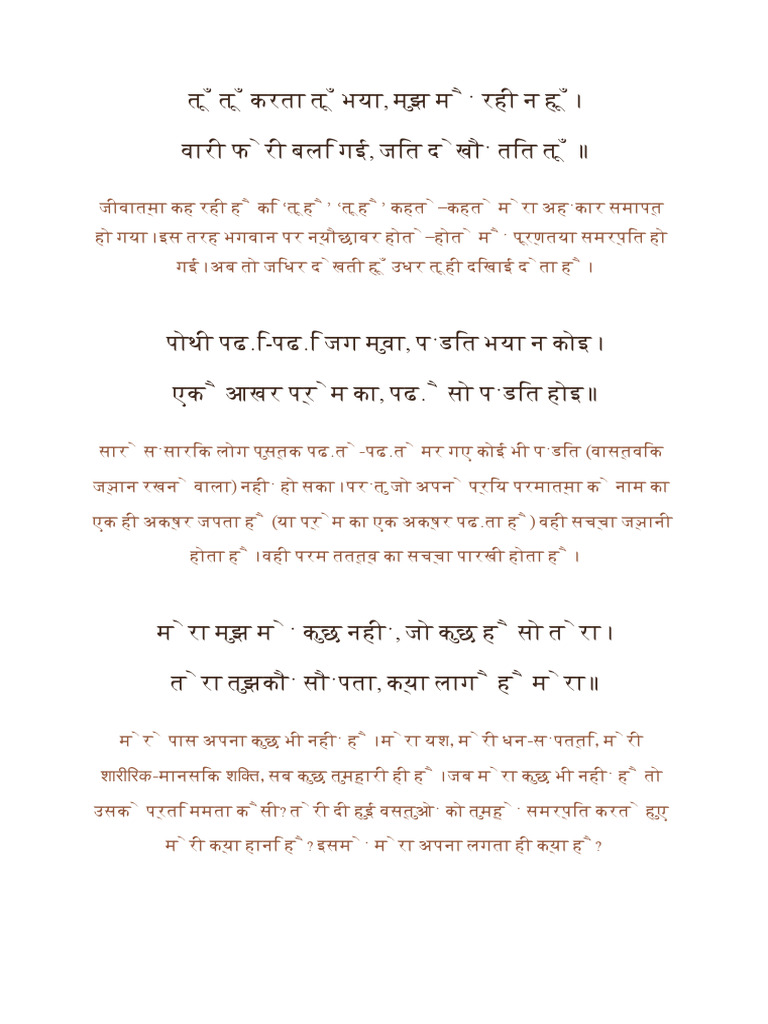 तूँ तूँ करता तूँ भया, मुझ मैं रही न हूँ ।
वारी फेरी बलि गई, जित देखौं तित तूँ ॥
जीवात्मा कह रही है कि ‘तू है’ ‘तू है’ कहते–कहते मेरा अहंकार समाप्त
हो गया । इस तरह भगवान पर न्यौछावर होते–होते मैं पूर्णतया समर्पित हो
गई । अब तो जिधर देखती हूँ उधर तू ही दिखाई देता है ।
पोथी पढ़ि-पढ़ि जग मुवा, पंडित भया न कोइ ।
एकै आखर प्रेम का, पढ़ै सो पंडित होइ ॥
सारे संसारिक लोग पुस्तक पढ़ते-पढ़ते मर गए कोई भी पंडित (वास्तविक
ज्ञान रखने वाला) नहीं हो सका । परंतु जो अपने प्रिय परमात्मा के नाम का
एक ही अक्षर जपता है (या प्रेम का एक अक्षर पढ़ता है) वही सच्चा ज्ञानी
होता है । वही परम तत्त्व का सच्चा पारखी होता है ।
मेरा मुझ में कुछ नहीं, जो कुछ है सो तेरा ।
तेरा तुझकौं सौंपता, क्या लागै है मेरा ॥
मेरे पास अपना कुछ भी नहीं है । मेरा यश, मेरी धन-संपत्ति, मेरी
शारीरिक-मानसिक शक्ति, सब कुछ तुम्हारी ही है । जब मेरा कुछ भी नहीं है तो
उसके प्रति ममता कैसी? तेरी दी हुई वस्तुओं को तुम्हें समर्पित करते हुए
मेरी क्या हानि है? इसमें मेरा अपना लगता ही क्या है?